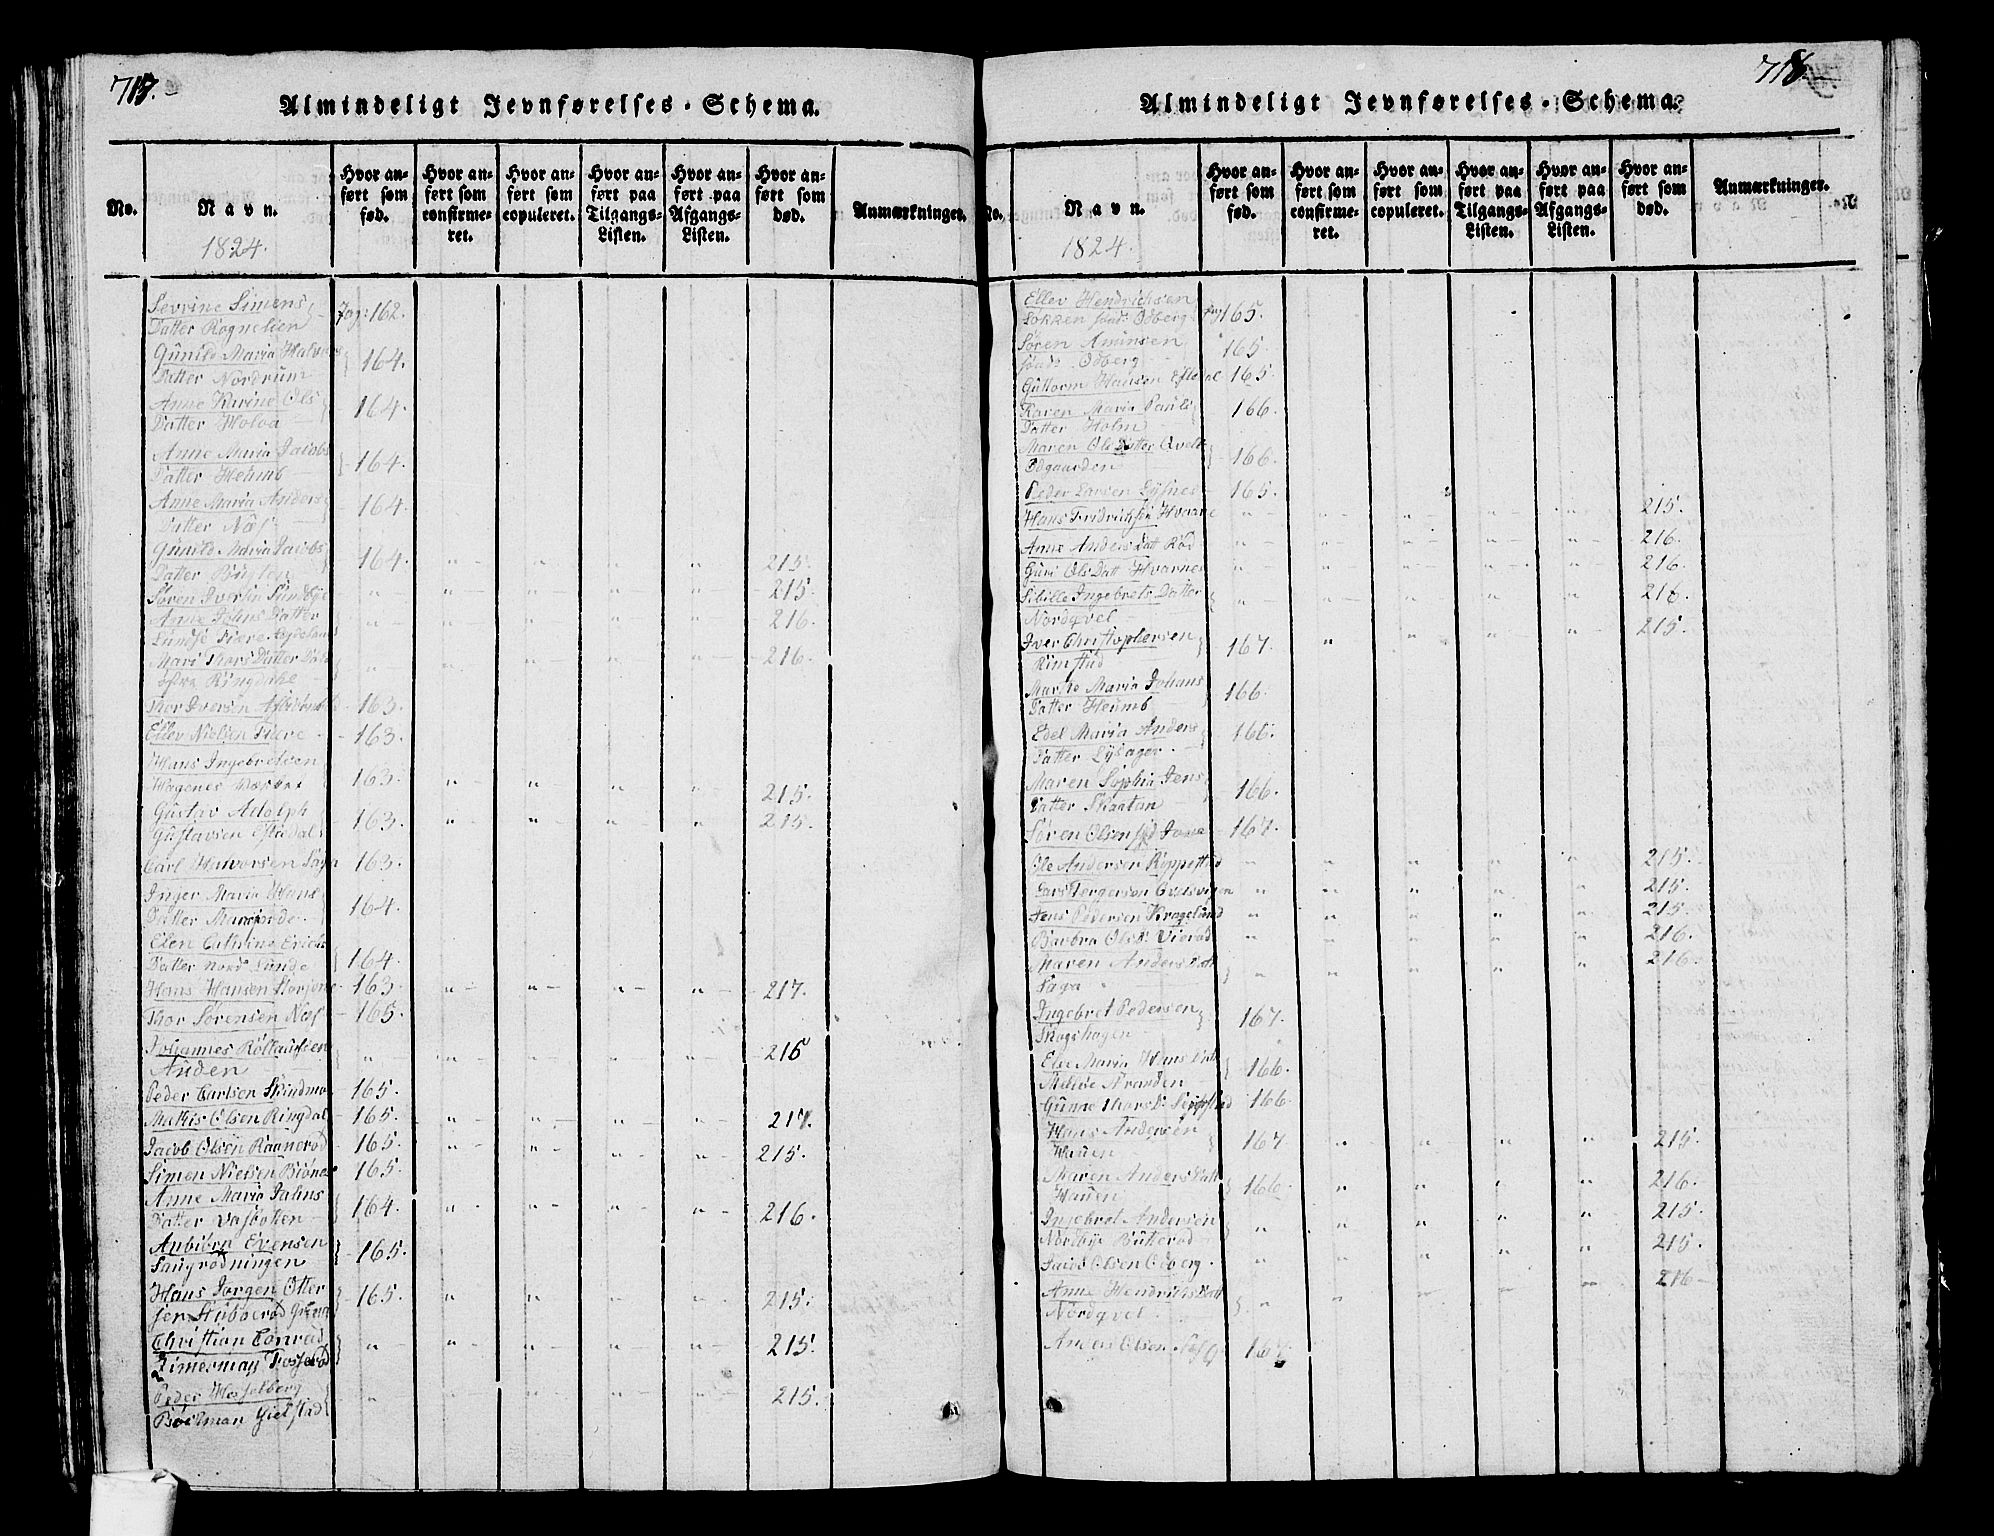 717.
Almindeligt Jevnførelses-Schema.
No.
Navn.
1824.
Hvor anført som fød.
Hvor anført som confirmeret.
Hvor anført som copuleret.
Hvor anført paa Tilgangs-Listen.
Hvor anført paa Afgangs-Listen.
Hvor anført som død.
Anmærkninger.
Sevrine Simens
Datter Rognelien Pag: 162.
Gunild Maria Halvors
Datter Nordrum 164.
Anne Karine Ols
Datter Holva 164.
Anne Maria Jacobs
Datter Heumb 164.
Anne Maria Anders
Datter Næs 164.
Gunild Maria Jacobs
Datter 164. " " " " 215.
Søren Iversen " " " " " 215.
Anne Johns Datter
Lundsé Fiære " " " " " 216.
Mari Thors Datter
Ringdahe " " " " " 216.
Thor Iversen 163.
Ellev Nielsen Fiære 163.
Hans Ingebretsen
Hagenes 163. " " " " 215.
Gustav Adolph
Gustavsen Eftedal 163. " " " " 215.
Carl Halvorsen Saga 163.
Inger Maria Hans
Datter 164.
Elen Cathrine Erichs
Datter Nord Lunde 164.
Hans Hansen 163. " " " " 217.
Thor Sørensen Næs 165.
Johannes Rollaufsen
Auden " " " " " 216
Peder Carlsen 165.
Mathis Olsen Ringdal 165. " " " " 217.
Jacob Olsen Raanerød 165. " " " " 215.
Simen Nielsen Biønes 165.
Anne Maria Jahns
Datter Vasbotten 164. " " " " 216.
Anbiørn Evensen
Saugrødningen 165.
Hans Jørgen Otter
sen 165. " " " " 215.
Christian Conrad
Zimerman " " " " " 215.
Peder Hesselberg
Bøckman Gielstad " " " " " 215.
718.
Almindeligt Jevnførelses-Schema.
No.
Navn.
1824.
Hvor anført som fød.
Hvor anført som confirmeret.
Hvor anført som copuleret.
Hvor anført paa Tilgangs-Listen.
Hvor anført paa Afgangs-Listen.
Hvor anført som død.
Anmærkninger.
Ellev Hendrichsen
Løkken sønd: Odberg Pag 165.
Søren Amunsen
sønd: Odberg 165.
Guttorm Hansen Eftedal 165.
Karen Maria Pauls
Datter Holm 166.
Maren Ols Datter Qvelle
Odgaarden 166.
Peder Larsen Lysnes 165.
Hans Fridrichsen Hvaare " " " " " 215.
Anne Anders Datt Rød " " " " " 216.
Guri Ols Datt Hvarnes " " " " " 216.
Sibille Ingebrets Datter
Nordqvel " " " " " 216.
Iver Christophersen
Rimstad 167. " " " " 215.
Marthe Maria Johans
Datter Heumb 166.
Edel Maria Anders
Datter Lysager 166.
Maren Sophia Jens
Datter Skaatan 166.
Søren Olsen 167.
Ole Andersen " " " " " 215.
Lars Jørgensen " " " " " 215.
Jens Pedersen Kragelund " " " " " 215.
Barbra Olsd: Vierød " " " " " 216.
Maren Anders Datt
Saga " " " " " 216.
Ingebret Pedersen
Skogshagen 167.
Else Maria Hans Datt
166.
Gunne Thors D: 166.
Hans Andersen
Hauen 167 " " " " 215.
Maren Anders Datt
Hauen 166. " " " " 216.
Ingebret Andersen
Nordbye Butterød " " " " " 215.
Jacob Olsen Odberg " " " " " 215.
Anne Hendrichs Datt
Nordqvel " " " " " 216
Anders Olsen 167